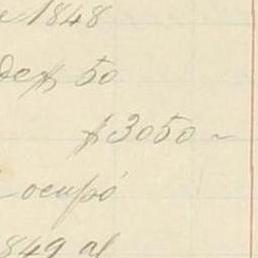 1848
de $ 50
$ 3050 ~
ocupó
1849 al